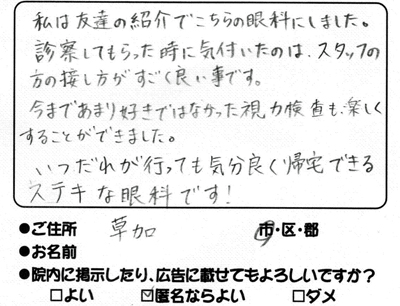 私は友達の紹介でこちらの眼科にしました。
診察してもらった時に気付いたのは、スタッフの
方の接し方がすごく良い事です。
今まであまり好きではなかった視力検査も、楽しく
することができました。
いつだれが行っても気分良く帰宅できる
ステキな眼科です!
●ご住所 草加 市・区・郡
●お名前
●院内に掲示したり、広告に載せてもよろしいですか?
□よい ☑匿名ならよい □ダメ